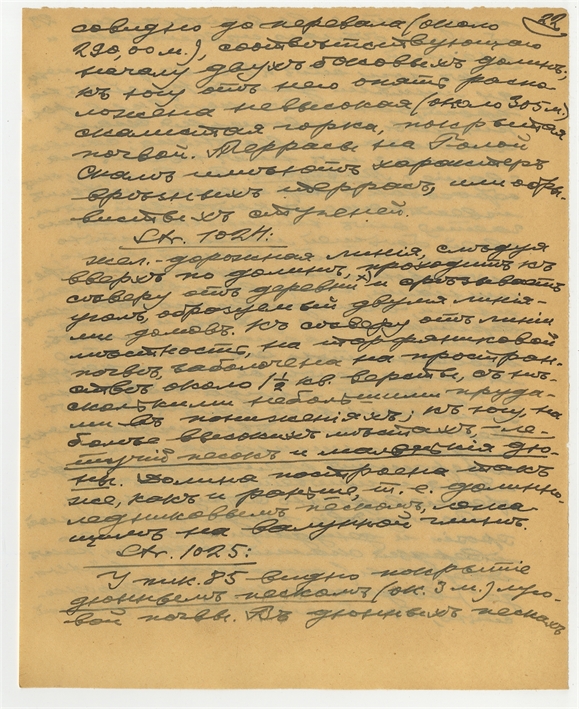 22.
совидно до перевала (около
290,00 м.), соотвѣтствующаго
началу двухъ боковыхъ долинъ;
къ югу отъ него опять распо-
ложена невысокая (около 305 м.)
скалистая горка, покрытая
почвой. Террасы на Голой
скалѣ имѣютъ характеръ
врѣзныхъ террасъ, или обры-
вистыхъ ступеней.
Str. 1024:
Жел.-дорожная линія, слѣдуя
вверхъ по долинѣ, проходитъ къ
сѣверу отъ деревни и срѣзываетъ
уголъ, образуемый двумя линія-
ми домовъ. Къ сѣверу отъ линіи
мѣстность, на торфяниковой
почвѣ, заболочена на простран-
ствѣ около 1½ кв. версты, съ нѣ-
сколькими небольшими пруда-
ми въ пониженіяхъ; къ югу, на
болѣе высокихъ мѣстахъ ле-
тучій песокъ и маленькія дю-
ны. Долина построена такъ
же, какъ и раньше, т. е. долинно-
ледниковымъ пескомъ, лежа-
щимъ на валунной глинѣ.
Str. 1025:
У пик. 85 видно покрытіе
дюннымъ пескомъ (ок. 3 м.)
вой почвы. Въ дюнныхъ пескахъ